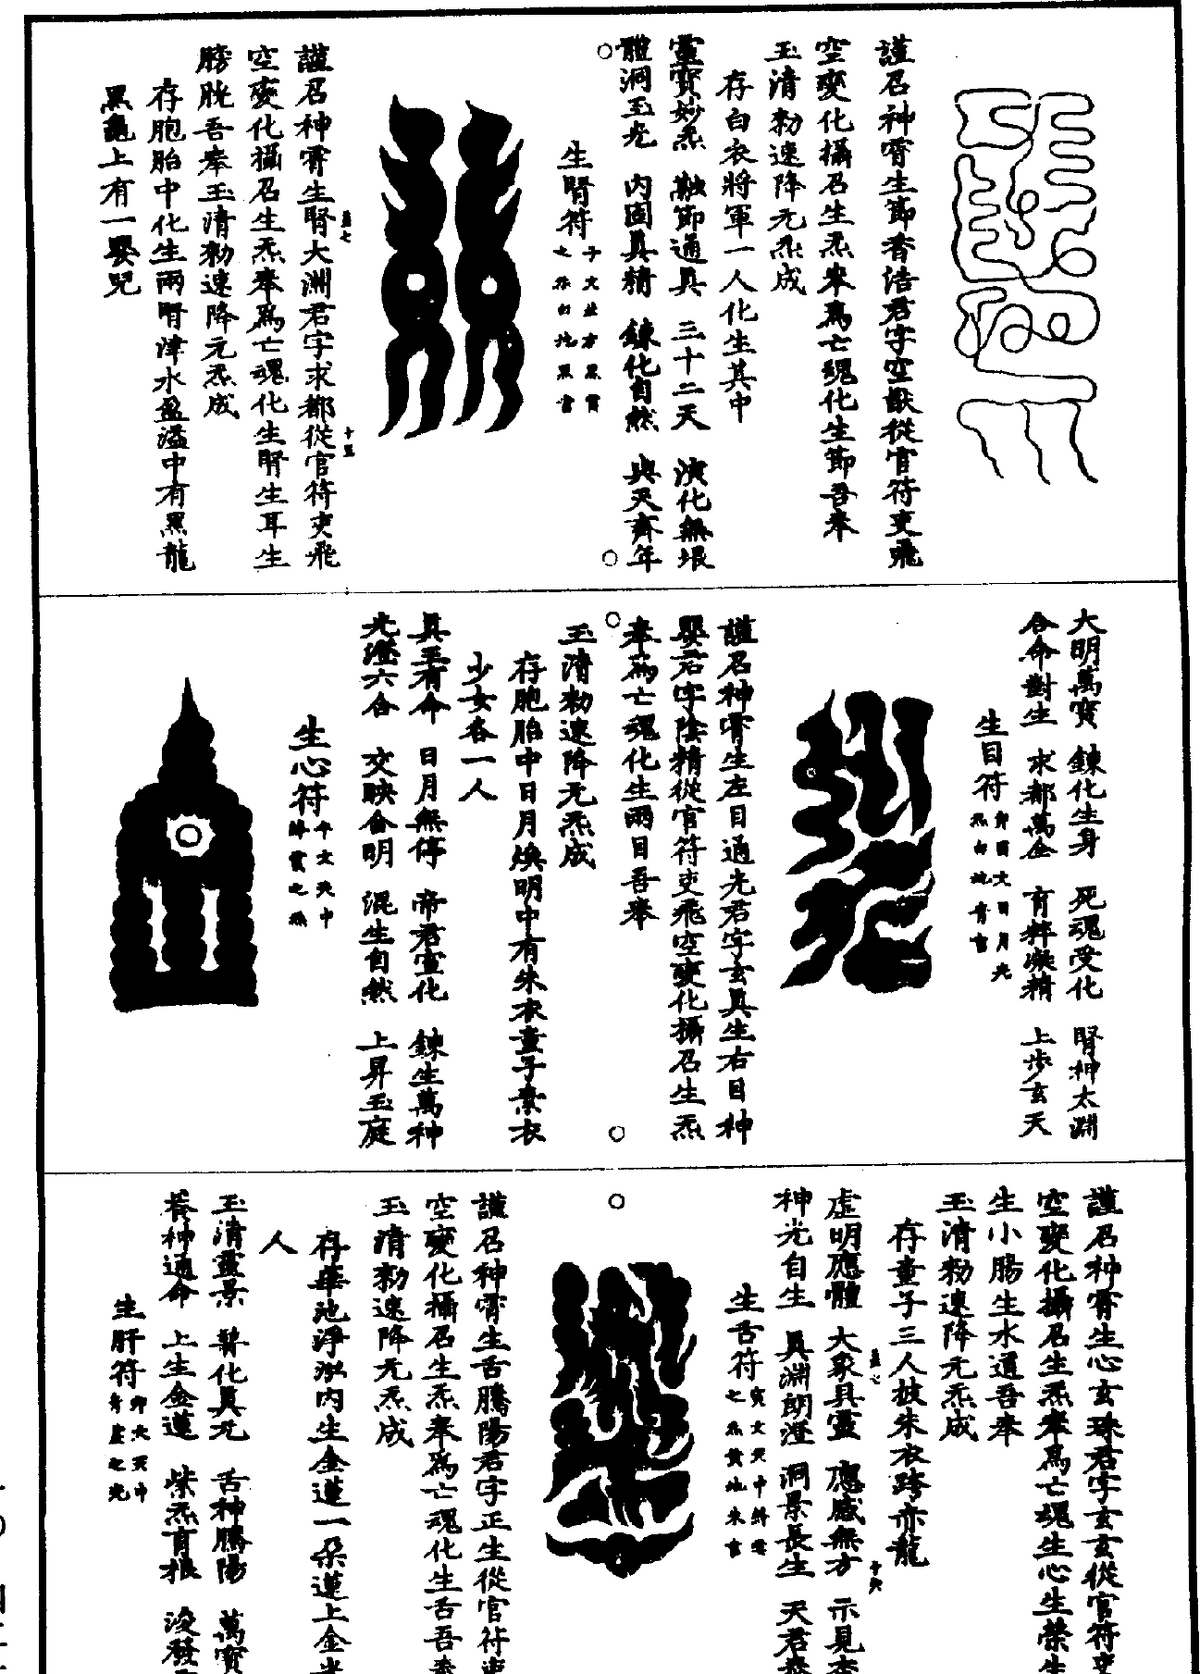 謹召神霄生節香浩君字空獸從官符吏飛
空變化攝召生炁奉爲亡魂化生節吾奉
玉清勑速降元炁成
存白衣將軍一人化生其中
靈寶妙炁 融節通真 三十二天 演化無垠
體洞玉光 内固真精 鍊化自然 與天齊年
生腎符
謹召神霄生腎大淵君字求都從官符吏飛
空變化攝召生炁奉爲亡魂化生腎生耳生
膀胱吾奉玉清勑速降元炁成
存胞胎中化生兩腎津水盈溢中有黑龍
黑龜上有一嬰兒
大明萬寶 鍊化生身 死魂受化 腎神太淵
合命對生 求都萬全 育粹凝精 上步玄天
生目符
謹召神霄生左目通光君字玄真生右目神
嬰君字陰精從官符吏飛空變化攝召生炁
奉爲亡魂化生兩目吾奉
玉清勑速降元炁成
存胞胎中日月煥明中有朱衣童子素衣
少女各一人
真王有命 日月無停 帝君宣化 鍊生萬神
光瑩六合 交映合明 混生自然 上昇玉庭
生心符 午文天中
謹召神霄生心玄珠君字玄玄從官符吏
空變化攝召生炁奉爲亡魂生心生榮生
生小腸生水道吾奉
玉清勑速降元炁成
存童子三人披朱衣跨赤龍
虛明應體 大象真靈 應感無方 示見
神光自生 真淵朗澄 洞景長生 天君
生舌符
謹召神霄生舌騰陽君字正生從官符吏
空變化攝召生炁奉爲亡魂化生舌吾奉
玉清勑速降元炁成
存華池淨泓内生金蓮一朵蓮上金光
人
玉清靈景 化真元 舌神騰陽 萬寶
養神通命 上生金蓮 紫炁育根
生肝符